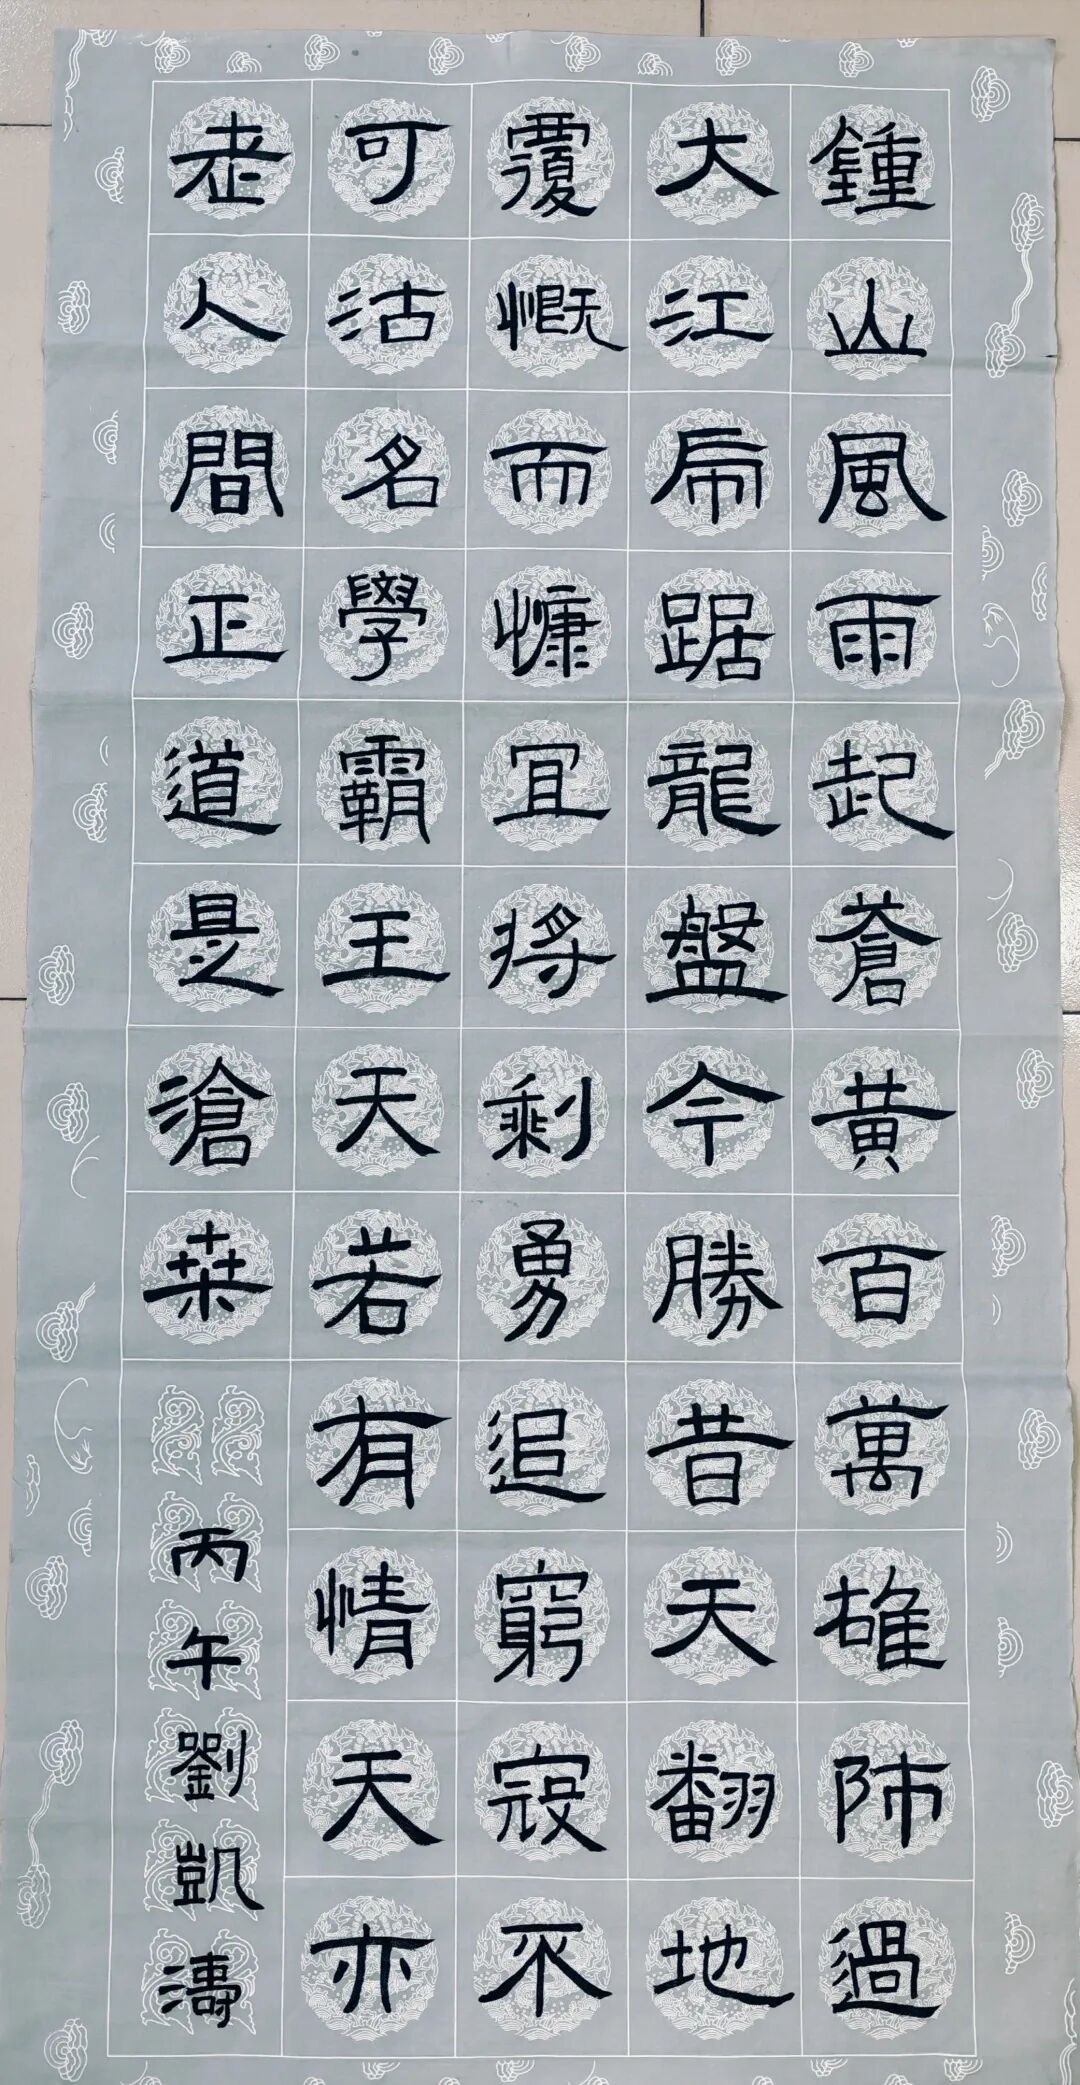 鍾山風雨起蒼黃百萬雄師過
大江虎踞龍盤今勝昔天翻地
覆慨而慷宜將剩勇追窮寇不
可沽名學霸王天若有情天亦
老人間正道是滄桒
丙午劉凱濤